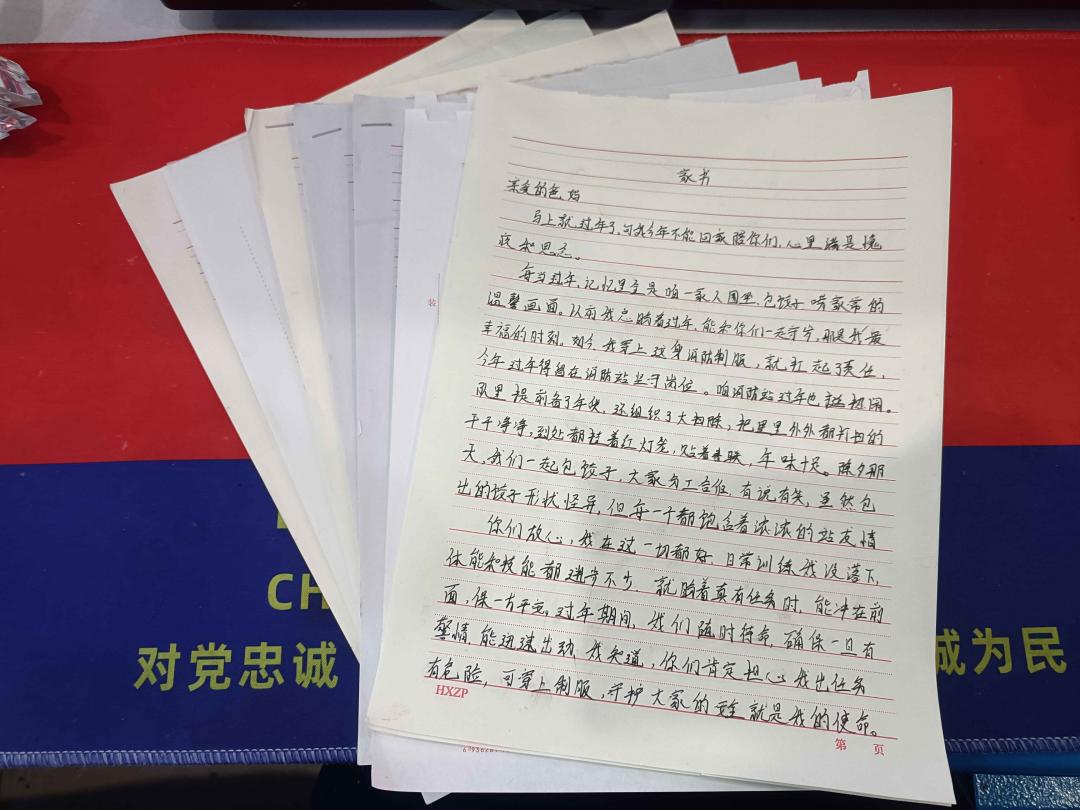 家书
亲爱的爸妈
马上就过年了,可我今年不能回家陪你们,心里满是愧
疚和思念。
每当过年,记忆里全是咱一家人围坐包饺子唠家常的
温馨画面。以前我总盼着过年,能和你们一起守岁,那是我最
幸福的时刻。如今我穿上这身消防制服,就扛起了责任,
今年过年得留在消防站坚守岗位。咱消防站过年也挺热闹。
队里提前备了年货,还组织了大扫除,把里里外外都打扫的
干干净净,到处都挂着红灯笼,贴着春联,年味十足。除夕那
天,我们一起包饺子,大家分工合作,有说有笑,虽然包
出的饺子形状怪异,但每一个都饱含着浓浓的站友情
你们放心,我在这一切都好,日常训练我没落下,
体能和技能都进步不少,就盼着真有任务时,能冲在前
面,保一方平安。过年期间,我们随时待命,确保一旦有
警情能迅速出动,我知道,你们肯定担心我出任务
有危险,可穿上制服,守护大家的安全就是我的使命。
HXZP
第 页
装
CH
对党忠诚
成为民